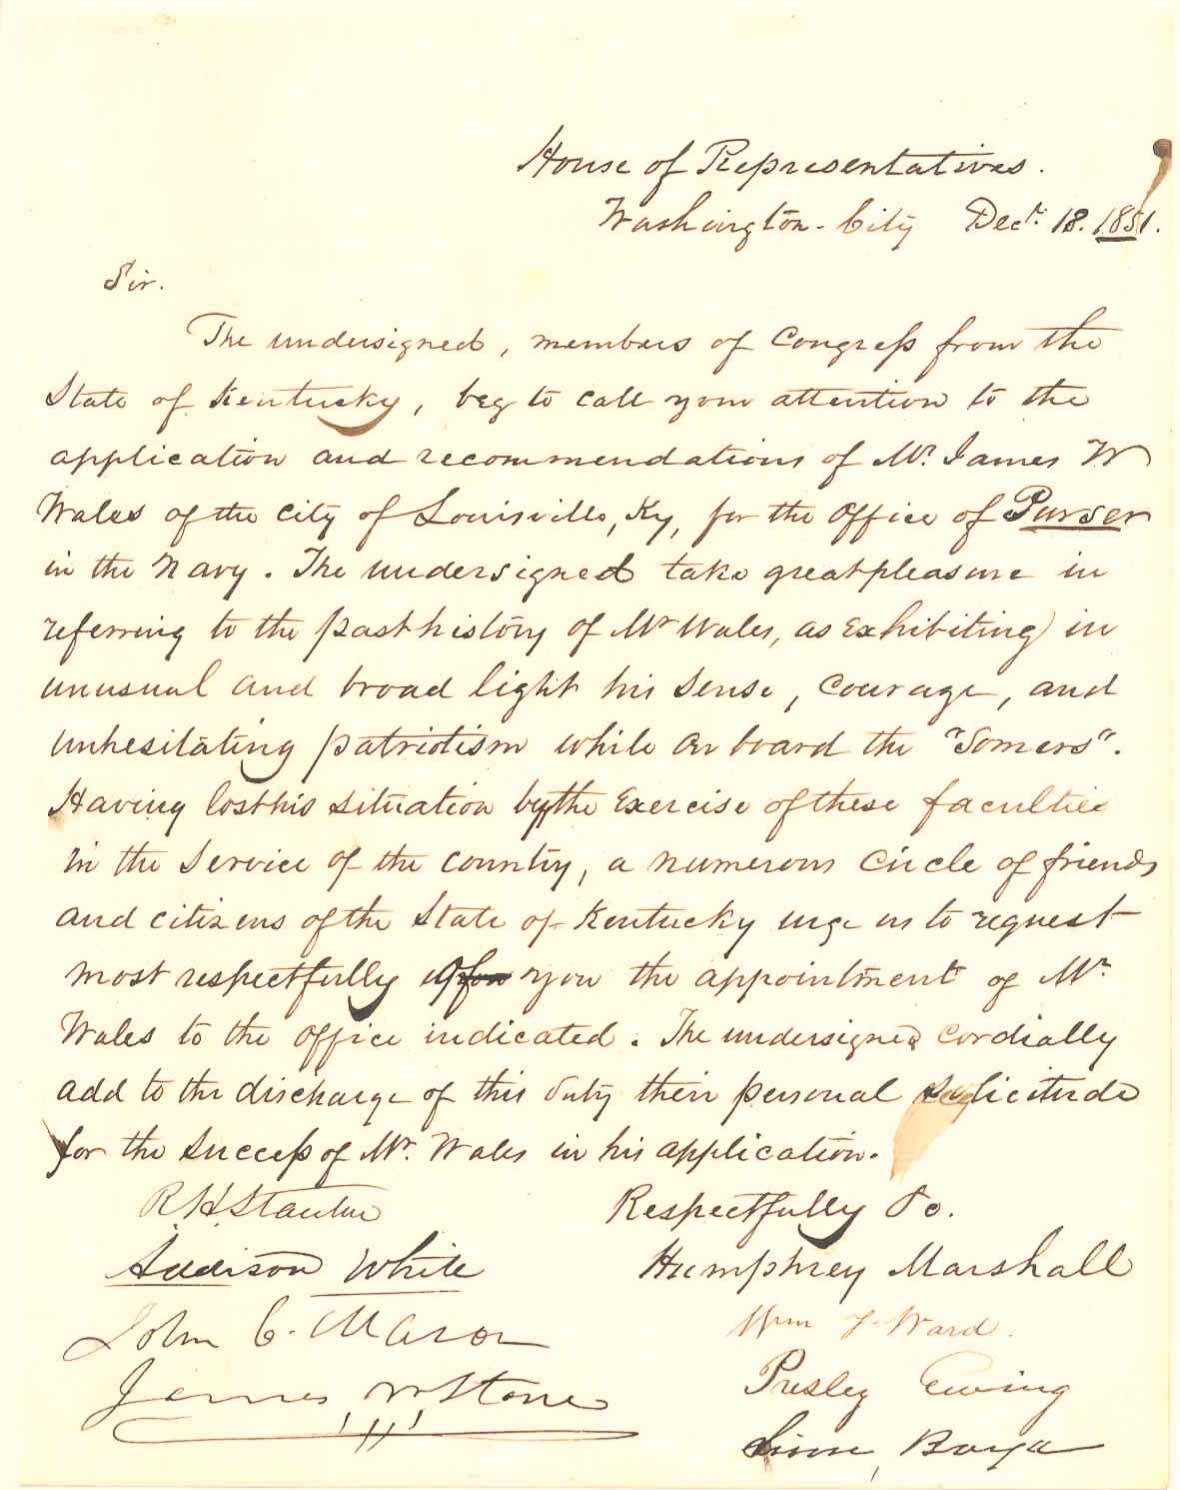 House of Representatives.
Washington-City Decr. 18. 1851.
Sir.
The undersigned, members of Congress from the
State of Kentucky, beg to call your attention to the
application and recommendations of Mr. James W
Wales of the city of Louisville, Ky, for the office of Purser
in the Navy. The undersigned take great pleasure in
referring to the past history of Mr Wales, as exhibiting in
unusual and broad light his sense, courage, and
unhesitating patriotism while on board the "Somers".
Having lost his situation by the Exercise of these faculties
in the service of the country, a numerous circle of friends
and citizens of the State of Kentucky urge us to request
most respectfully you the appointment of Mr.
Wales to the office indicated. The undersigned cordially
add to the discharge of this duty their personal solicitude
for the success of Mr. Wales in his application.
R. H. Stanton
Respectfully &c.
Addison White
Humphrey Marshall
John C. Mason
Wm T. Ward.
James W Stone
Presley Ewing
Linn Boyd